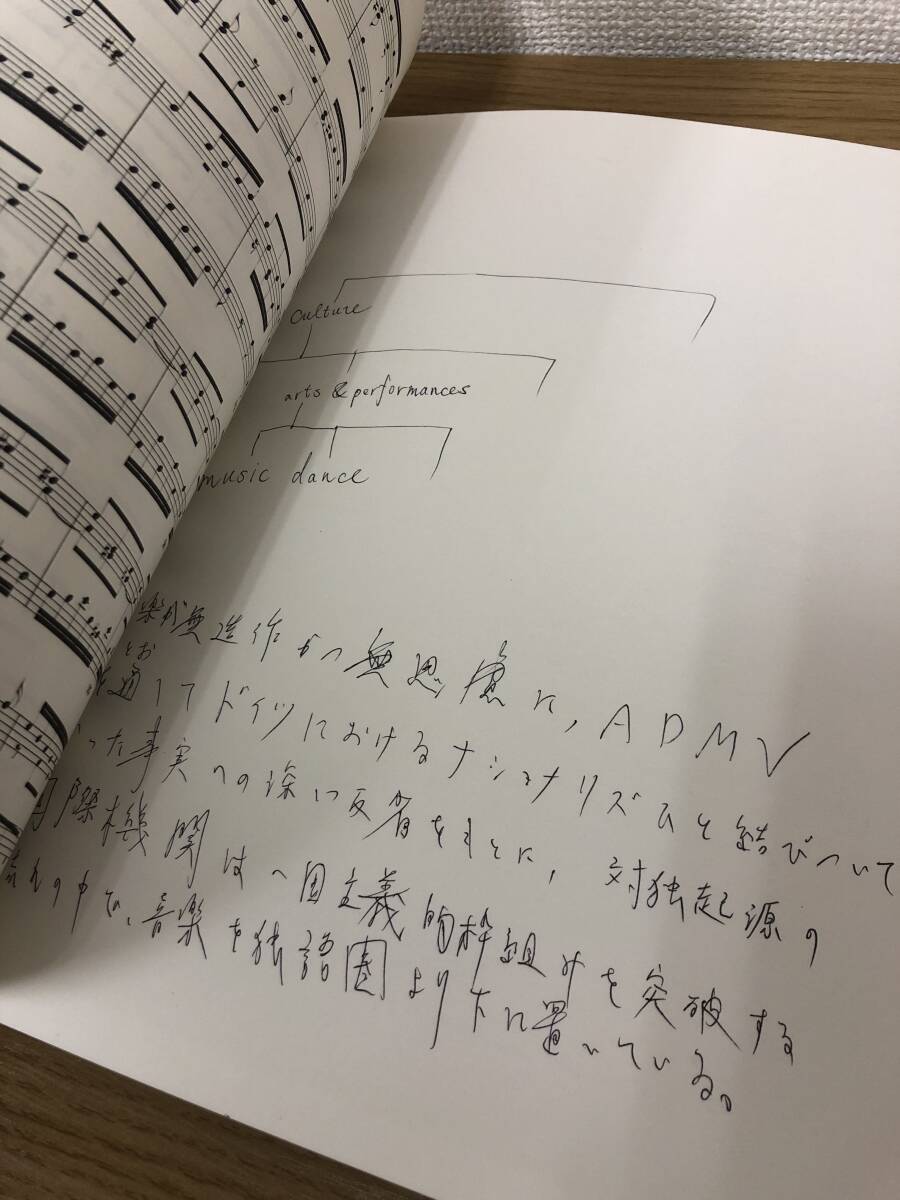 culture
arts & performances
music dance
楽が無造作かつ無思慮に, ADMV
とお
通してドイツにおけるナショナリズムと結びついて
った事実への深い反省をもとに, 対独起源の
際機関は一国主義的枠組みを突破する
流れの中で、音楽を独語圏より下に置いている。